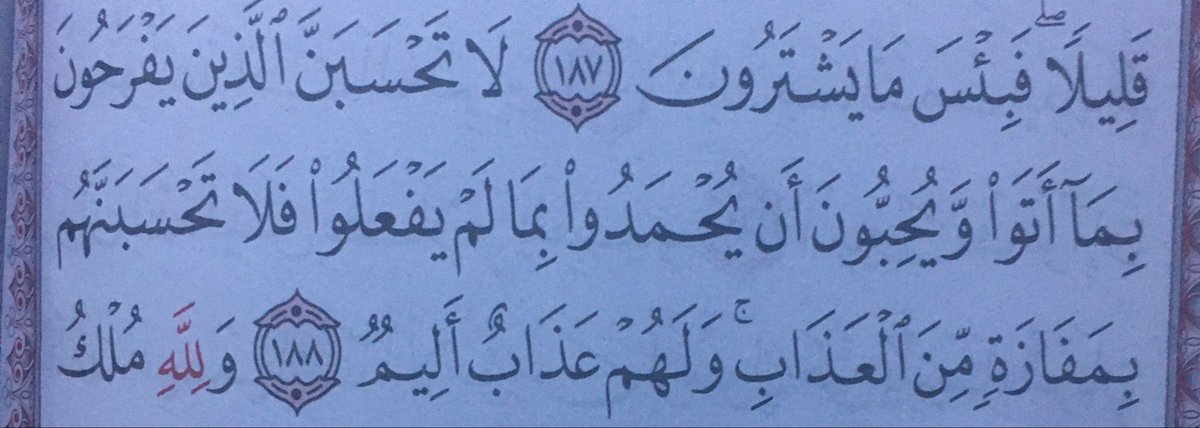 قَلِيلًاۖ فَبِئْسَ مَا يَشْتَرُونَ ١٨٧ لَا تَحْسَبَنَّ ٱلَّذِينَ يَفْرَحُونَ
بِمَآ أَتَوا۟ وَّيُحِبُّونَ أَن يُحْمَدُوا۟ بِمَا لَمْ يَفْعَلُوا۟ فَلَا تَحْسَبَنَّهُم
بِمَفَازَةٍ مِّنَ ٱلْعَذَابِۚ وَلَهُمْ عَذَابٌ أَلِيمٌ ١٨٨ وَلِلَّهِ مُلْكُ